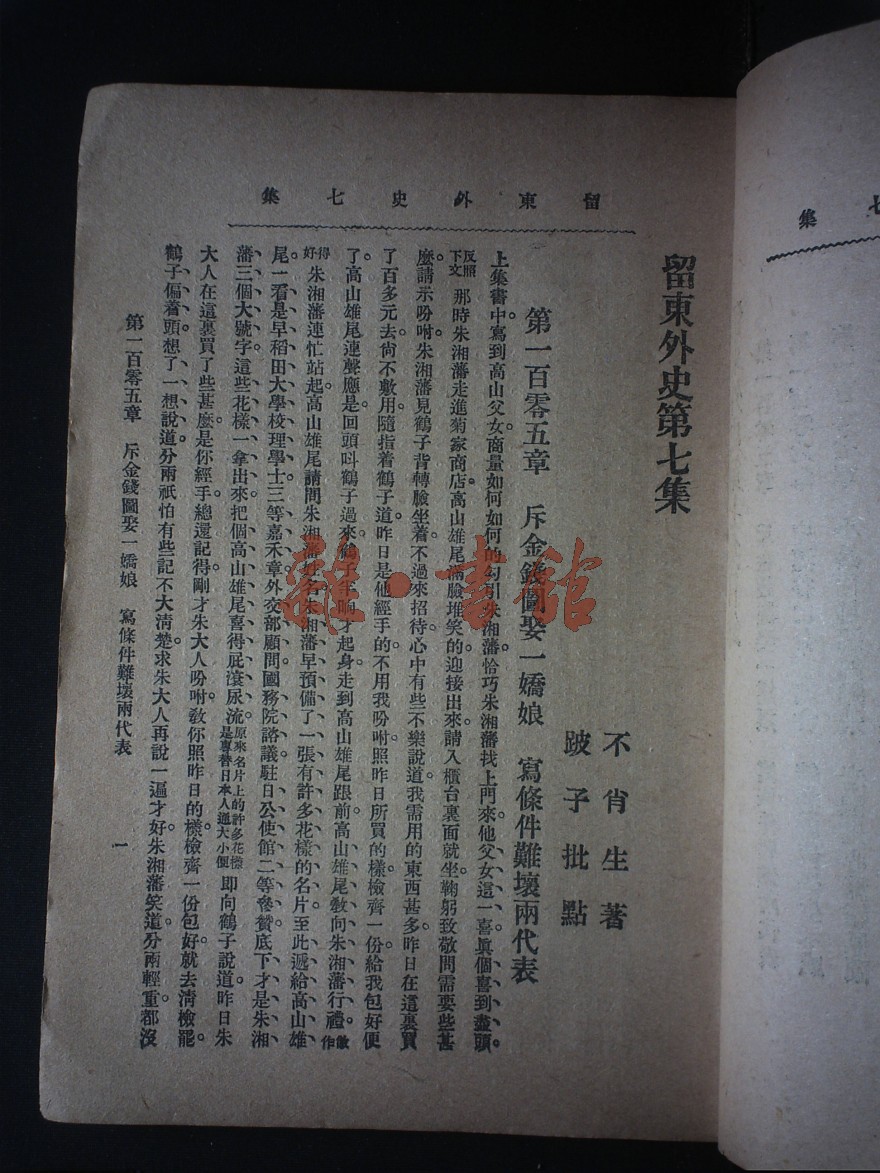 留東外史七集
留東外史第七集
不肖生著
跛子批點
第一百零五章　斥金錢圖娶一嬌娘　寫條件難壞兩代表
上集書中。寫到高山父女商量如何如何的勾引朱湘藩。恰巧朱湘藩找上門來。他父女這一喜。眞個喜到盡頭。
反照下文 那時朱湘藩走進菊家商店。高山雄尾滿臉堆笑的迎接出來。請入櫃台裏面就坐。鞠躬致敬。問需要些甚
麽。請示吩咐。朱湘藩見鶴子背轉臉坐着。不過來招待。心中有些不樂。說道。我需用的東西甚多。昨日在這裏買
了百多元去。尙不敷用。隨指着鶴子道。昨日是他經手的。不用我吩咐。照昨日所買的樣檢齊一份。給我包好便
了。高山雄尾連聲應是。回頭呌鶴子過來。鶴子半晌才起身走到高山雄尾跟前。高山雄尾敎向朱湘藩行禮。做作
得好 朱湘藩連忙站起。高山雄尾請問朱湘藩姓名。朱湘藩早預備了一張有許多花樣的名片。至此遞給高山雄
尾。一看是早稻田大學校理學士三等嘉禾章外交部顧問國務院諮議駐日公使館二等參贊。底下才是朱湘
藩三個大號字。這些花樣一拿出來。把個高山雄尾喜得屁滾尿流。原來名片上的許多花樣是專替日本人通大小便 即向鶴子說道。昨日朱
大人在這裏買了些甚麽。是你經手。總還記得。剛才朱大人吩咐。敎你照昨日的樣檢齊一份包好。就去淸檢罷。
鶴子偏着頭想了一想說道。分兩祇怕有些記不大淸楚。求朱大人再說一遍才好。朱湘藩笑道。分兩輕重都沒
第一百零五章　斥金錢圖娶一嬌娘　寫條件難壞兩代表
一
七集
雜·書館